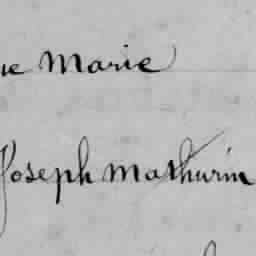 ue Marie
Joseph Mathurin